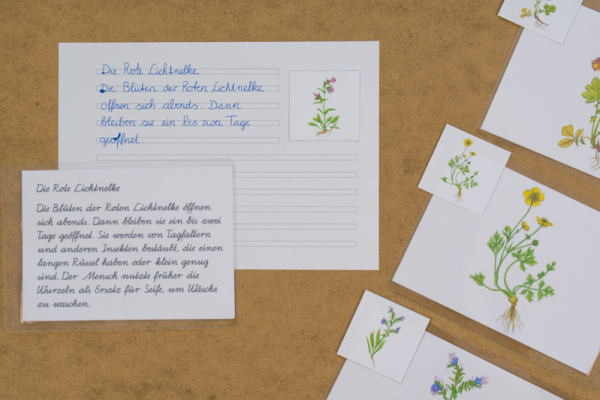 Die Rote Lichtnelke
Die Blüten der Roten Lichtnelke
öffnen sich abends. Dann
bleiben sie ein bis zwei Tage
geöffnet.
Die Rote Lichtnelke
Die Blüten der Roten Lichtnelke öffnen
sich abends. Dann bleiben sie ein bis zwei
Tage geöffnet. Sie werden von Tagfaltern
und anderen Insekten bestäubt, die einen
langen Rüssel haben oder klein genug
sind. Der Mensch nutzte früher die
Wurzeln als Ersatz für Seife, um Wäsche
zu waschen.